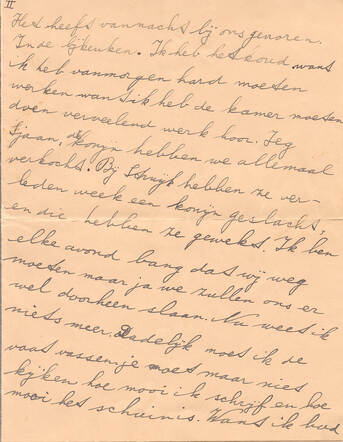 II
Het heeft vannacht bij ons gevroren.
In de bijkeuken. Ik heb het koud want
ik heb vanmorgen hard moeten
werken want ik heb de kamer moeten
doen vervelend werk hoor. Zeg
Sjaan, de konijn hebben we allemaal
verkocht. Bij Struijk hebben ze ver-
leden week een konijn geslacht,
en die hebben ze gewekt. Ik ben
elke avond bang dat wij weg
moeten maar ja we zullen ons er
wel doorheen slaan. Nu weet ik
niets meer. Dadelijk moet ik de
vaat wassen je moet maar nies
kijken hoe mooi ik schrijf en hoe
mooi het schuin is. Want ik had